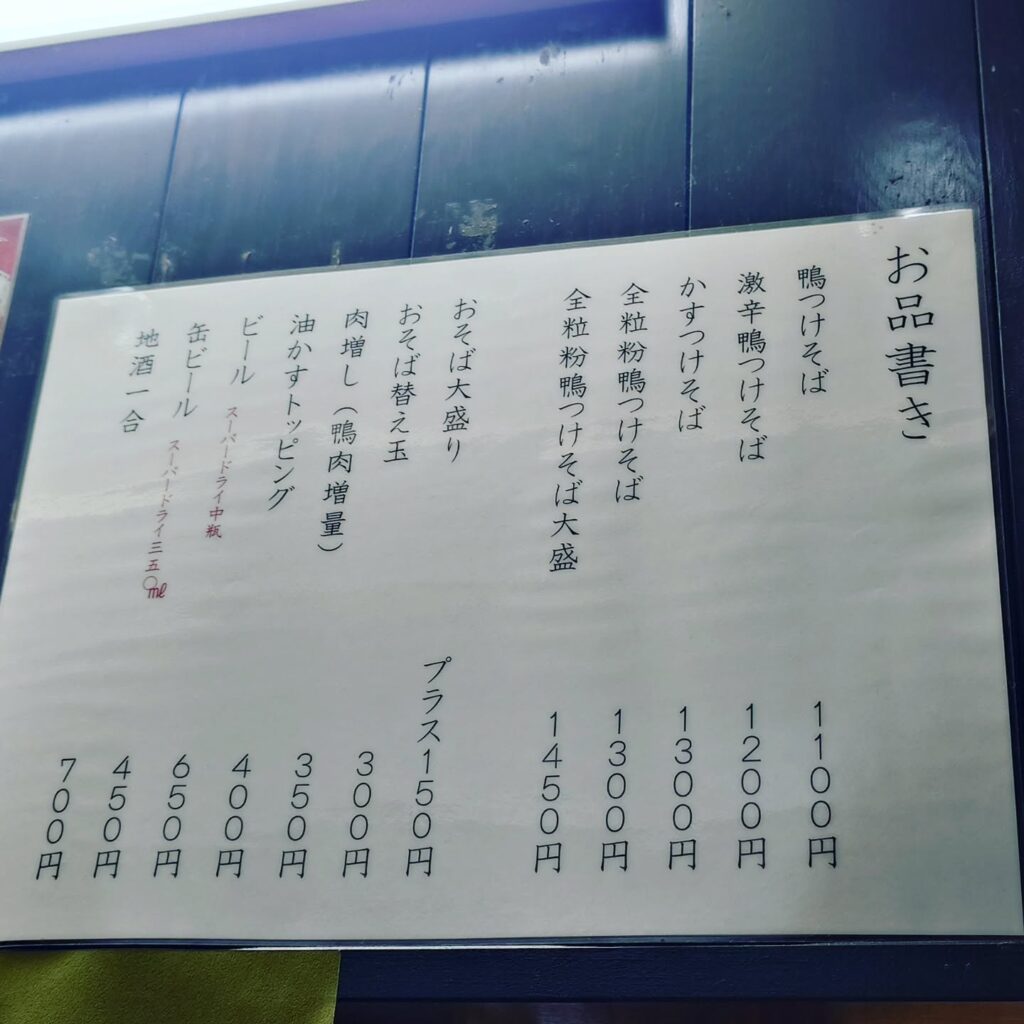 お品書き
鴨つけそば 1100円
激辛鴨つけそば 1200円
かすつけそば 1300円
全粒粉鴨つけそば 1300円
全粒粉鴨つけそば大盛 1450円
おそば大盛り プラス150円
おそば替え玉 300円
肉増し（鴨肉増量） 350円
油かすトッピング 400円
ビール スーパードライ中瓶 650円
缶ビール スーパードライ三五〇㎖ 450円
地酒一合 700円